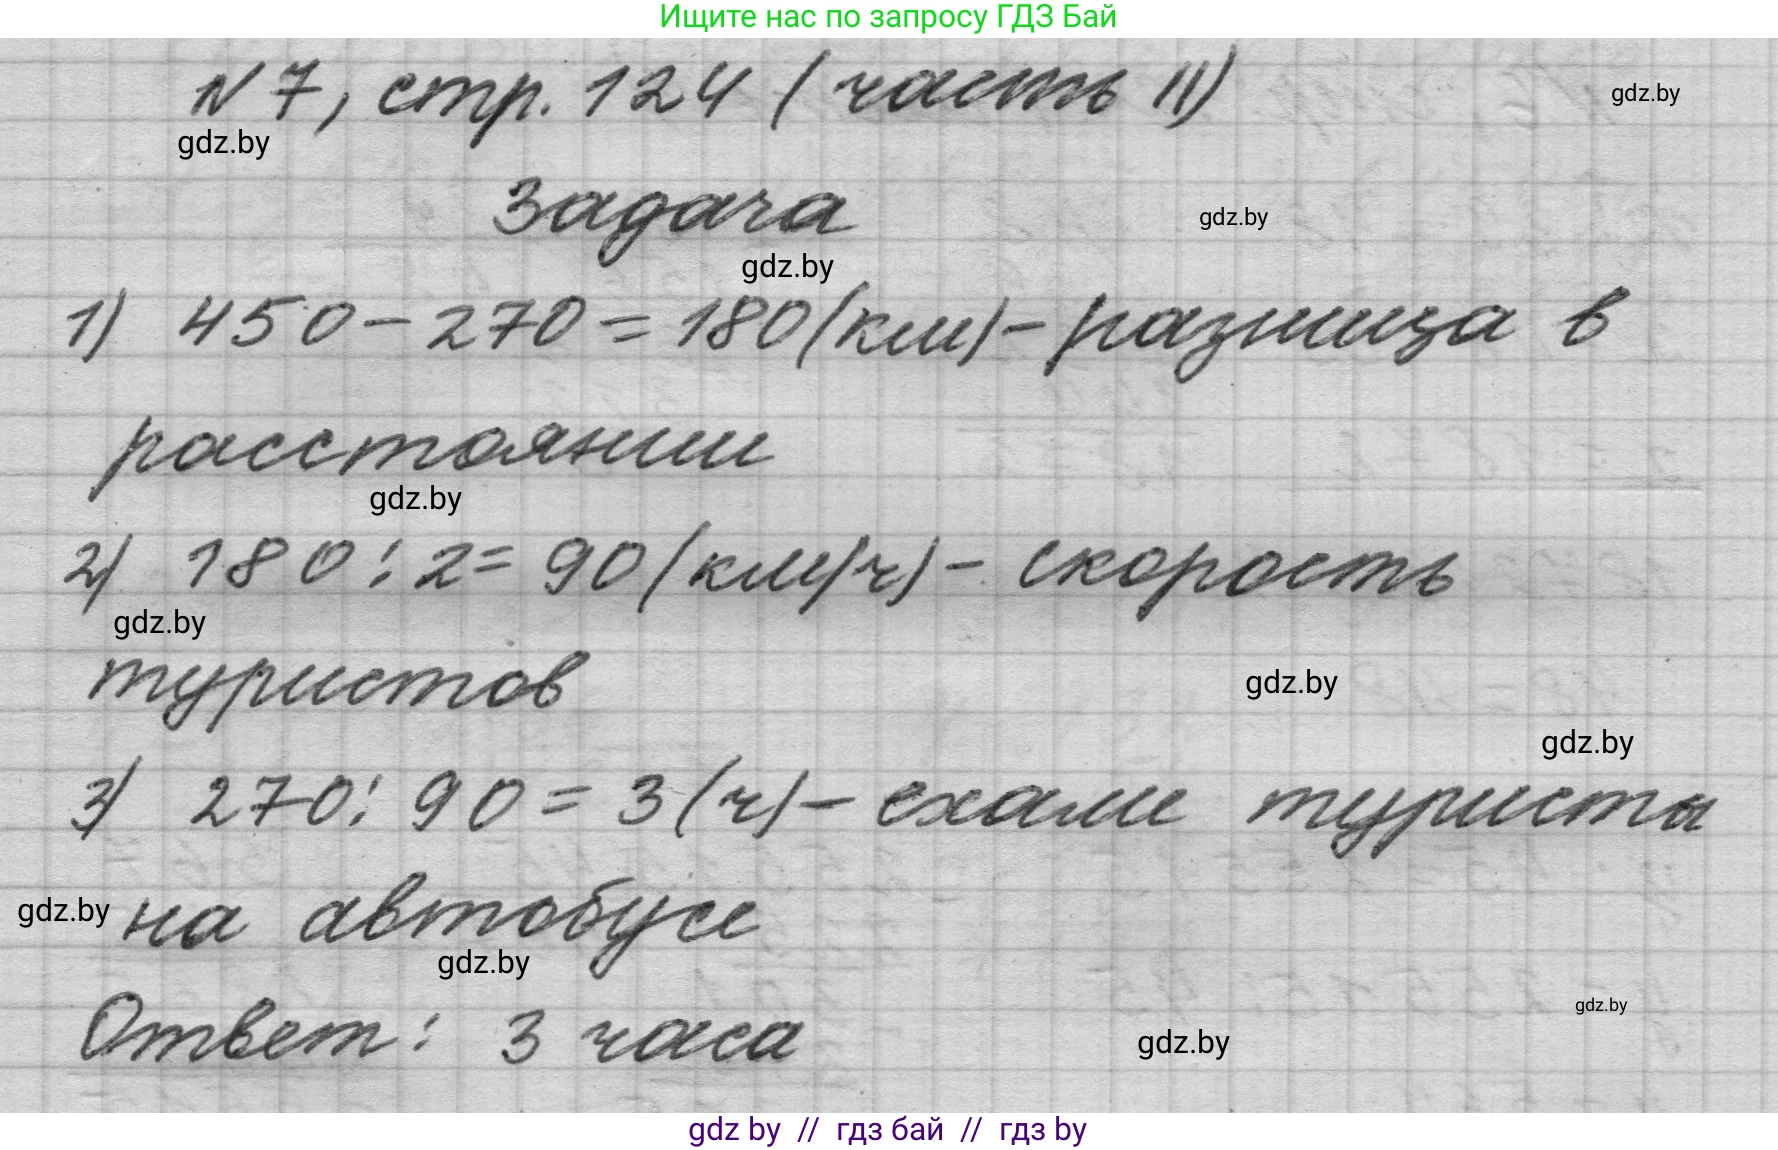 Ищите нас по запросу ГДЗ Бай
N 7, стр. 124 (часть II)
gdz.by
gdz.by
Задача
gdz.by
gdz.by
1) 450-270=180(км)-разница в
расстоянии
gdz.by
2) 180:2=90(км/ч)- скорость
gdz.by
туристов
gdz.by
gdz.by
3) 270:90=3(ч)- ехали туристы
gdz.by
на автобусе
gdz.by
Ответ: 3 часа
gdz.by
gdz.by
gdz by // гдз бай // гдз by